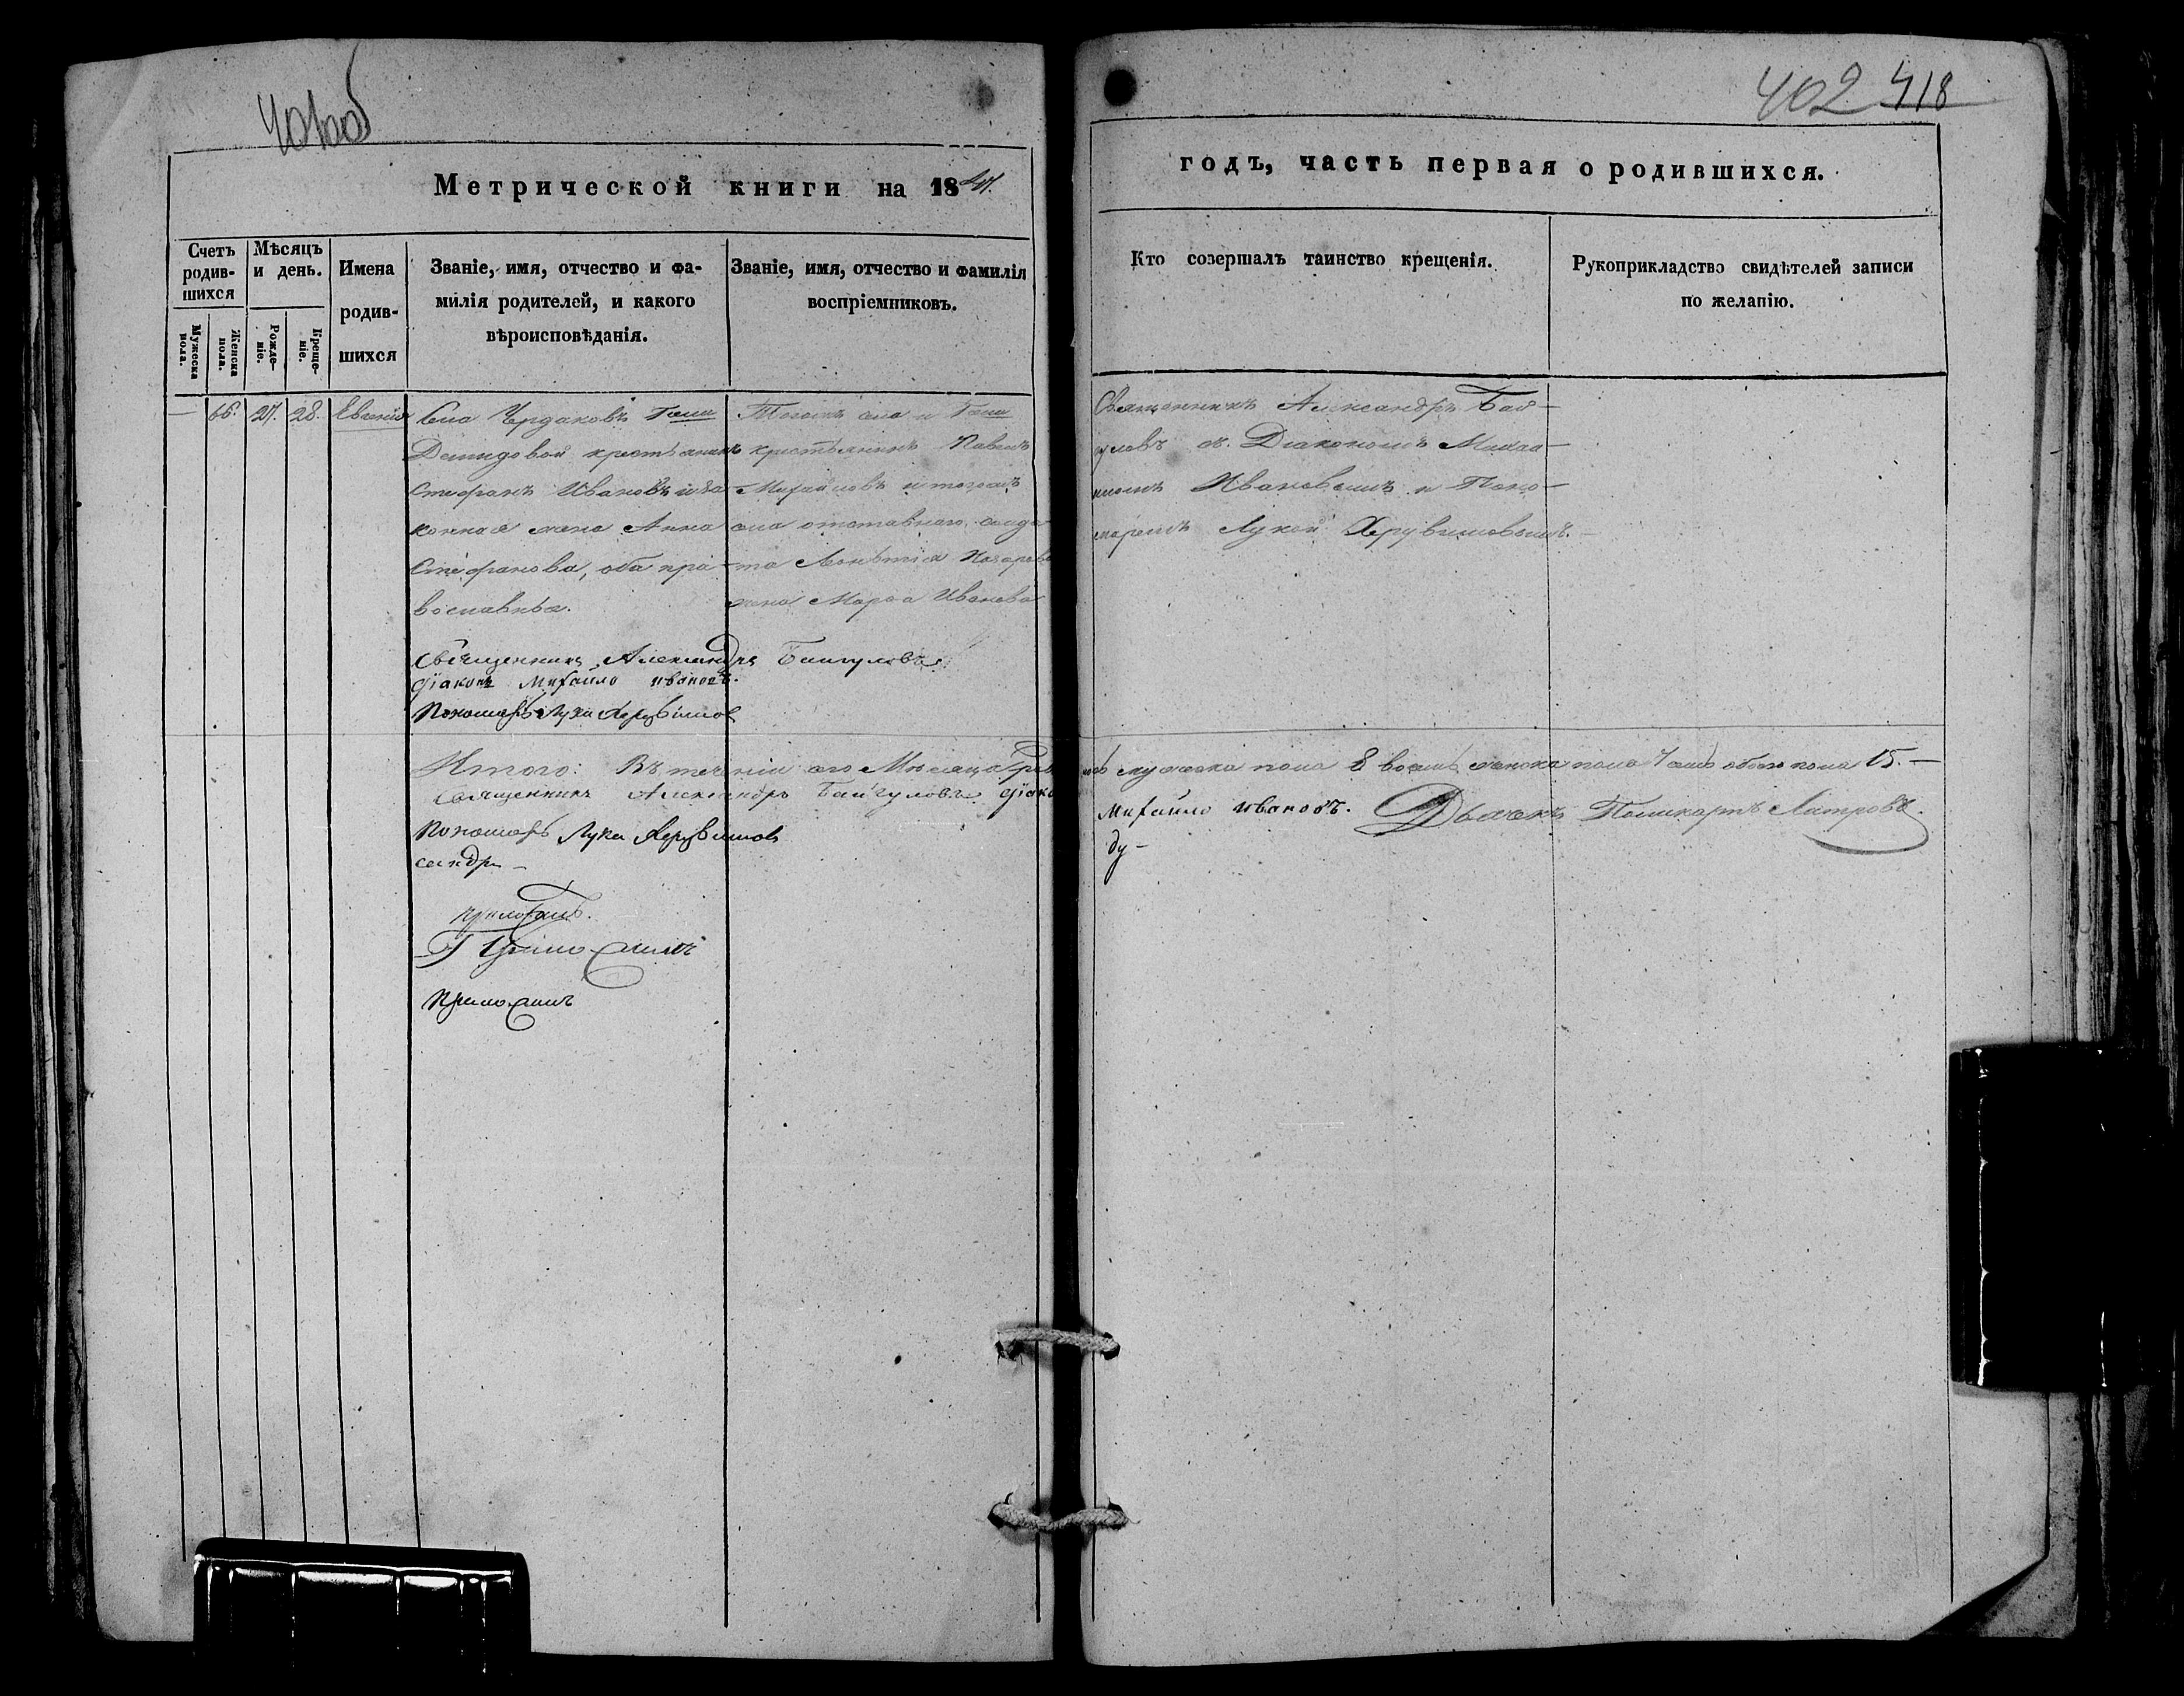 401об
402 418
Метрической книги на 18
годъ, часть первая о родившихся.
Счетъ родив-
шихся
Мѣсяцъ
и день.
Мужеска
пола.
Женска
пола.
Рожде-
ніе.
Креще-
ніе.
Имена
родив-
шихся
Званіе, имя, отчество и фа-
милія родителей, и какого
вѣроисповѣданія.
Званіе, имя, отчество и фамилія
воспріемниковъ.
Кто совершалъ таинство крещенія.
Рукоприкладство свидѣтелей записи
по желанію.
66. 27. 28. Евгенія
Села Чердаковъ Гжи
Демидовой крестьянинъ
Стефанъ Ивановъ и за-
конная жена Анна
Стефанова, оба пра-
вославные.
Тогожъ села и Гжи
крестьянинъ Павелъ
Михайловъ и тогожъ
села отставнаго солда-
та Леонтія
жена Марѳа Иванова
Священникъ Александръ Бай-
гуловъ съ Діакономъ Михаи-
ломъ Ивановымъ и Поно-
маремъ Лукой Херувимовымъ.
Священникъ Александръ Байгуловъ
діаконъ Михайло Ивановъ.
Пономарь Лука Херувимов
Итого: Въ теченіи сего Мѣсяца мужеска пола 8 восемь женска пола 7 семь обоего пола 15.
Священникъ Александръ Байгуловъ діако Михайло Ивановъ. Дьячекъ Поликарпъ
Пономарь Лука Херувимовъ
сандръ ду